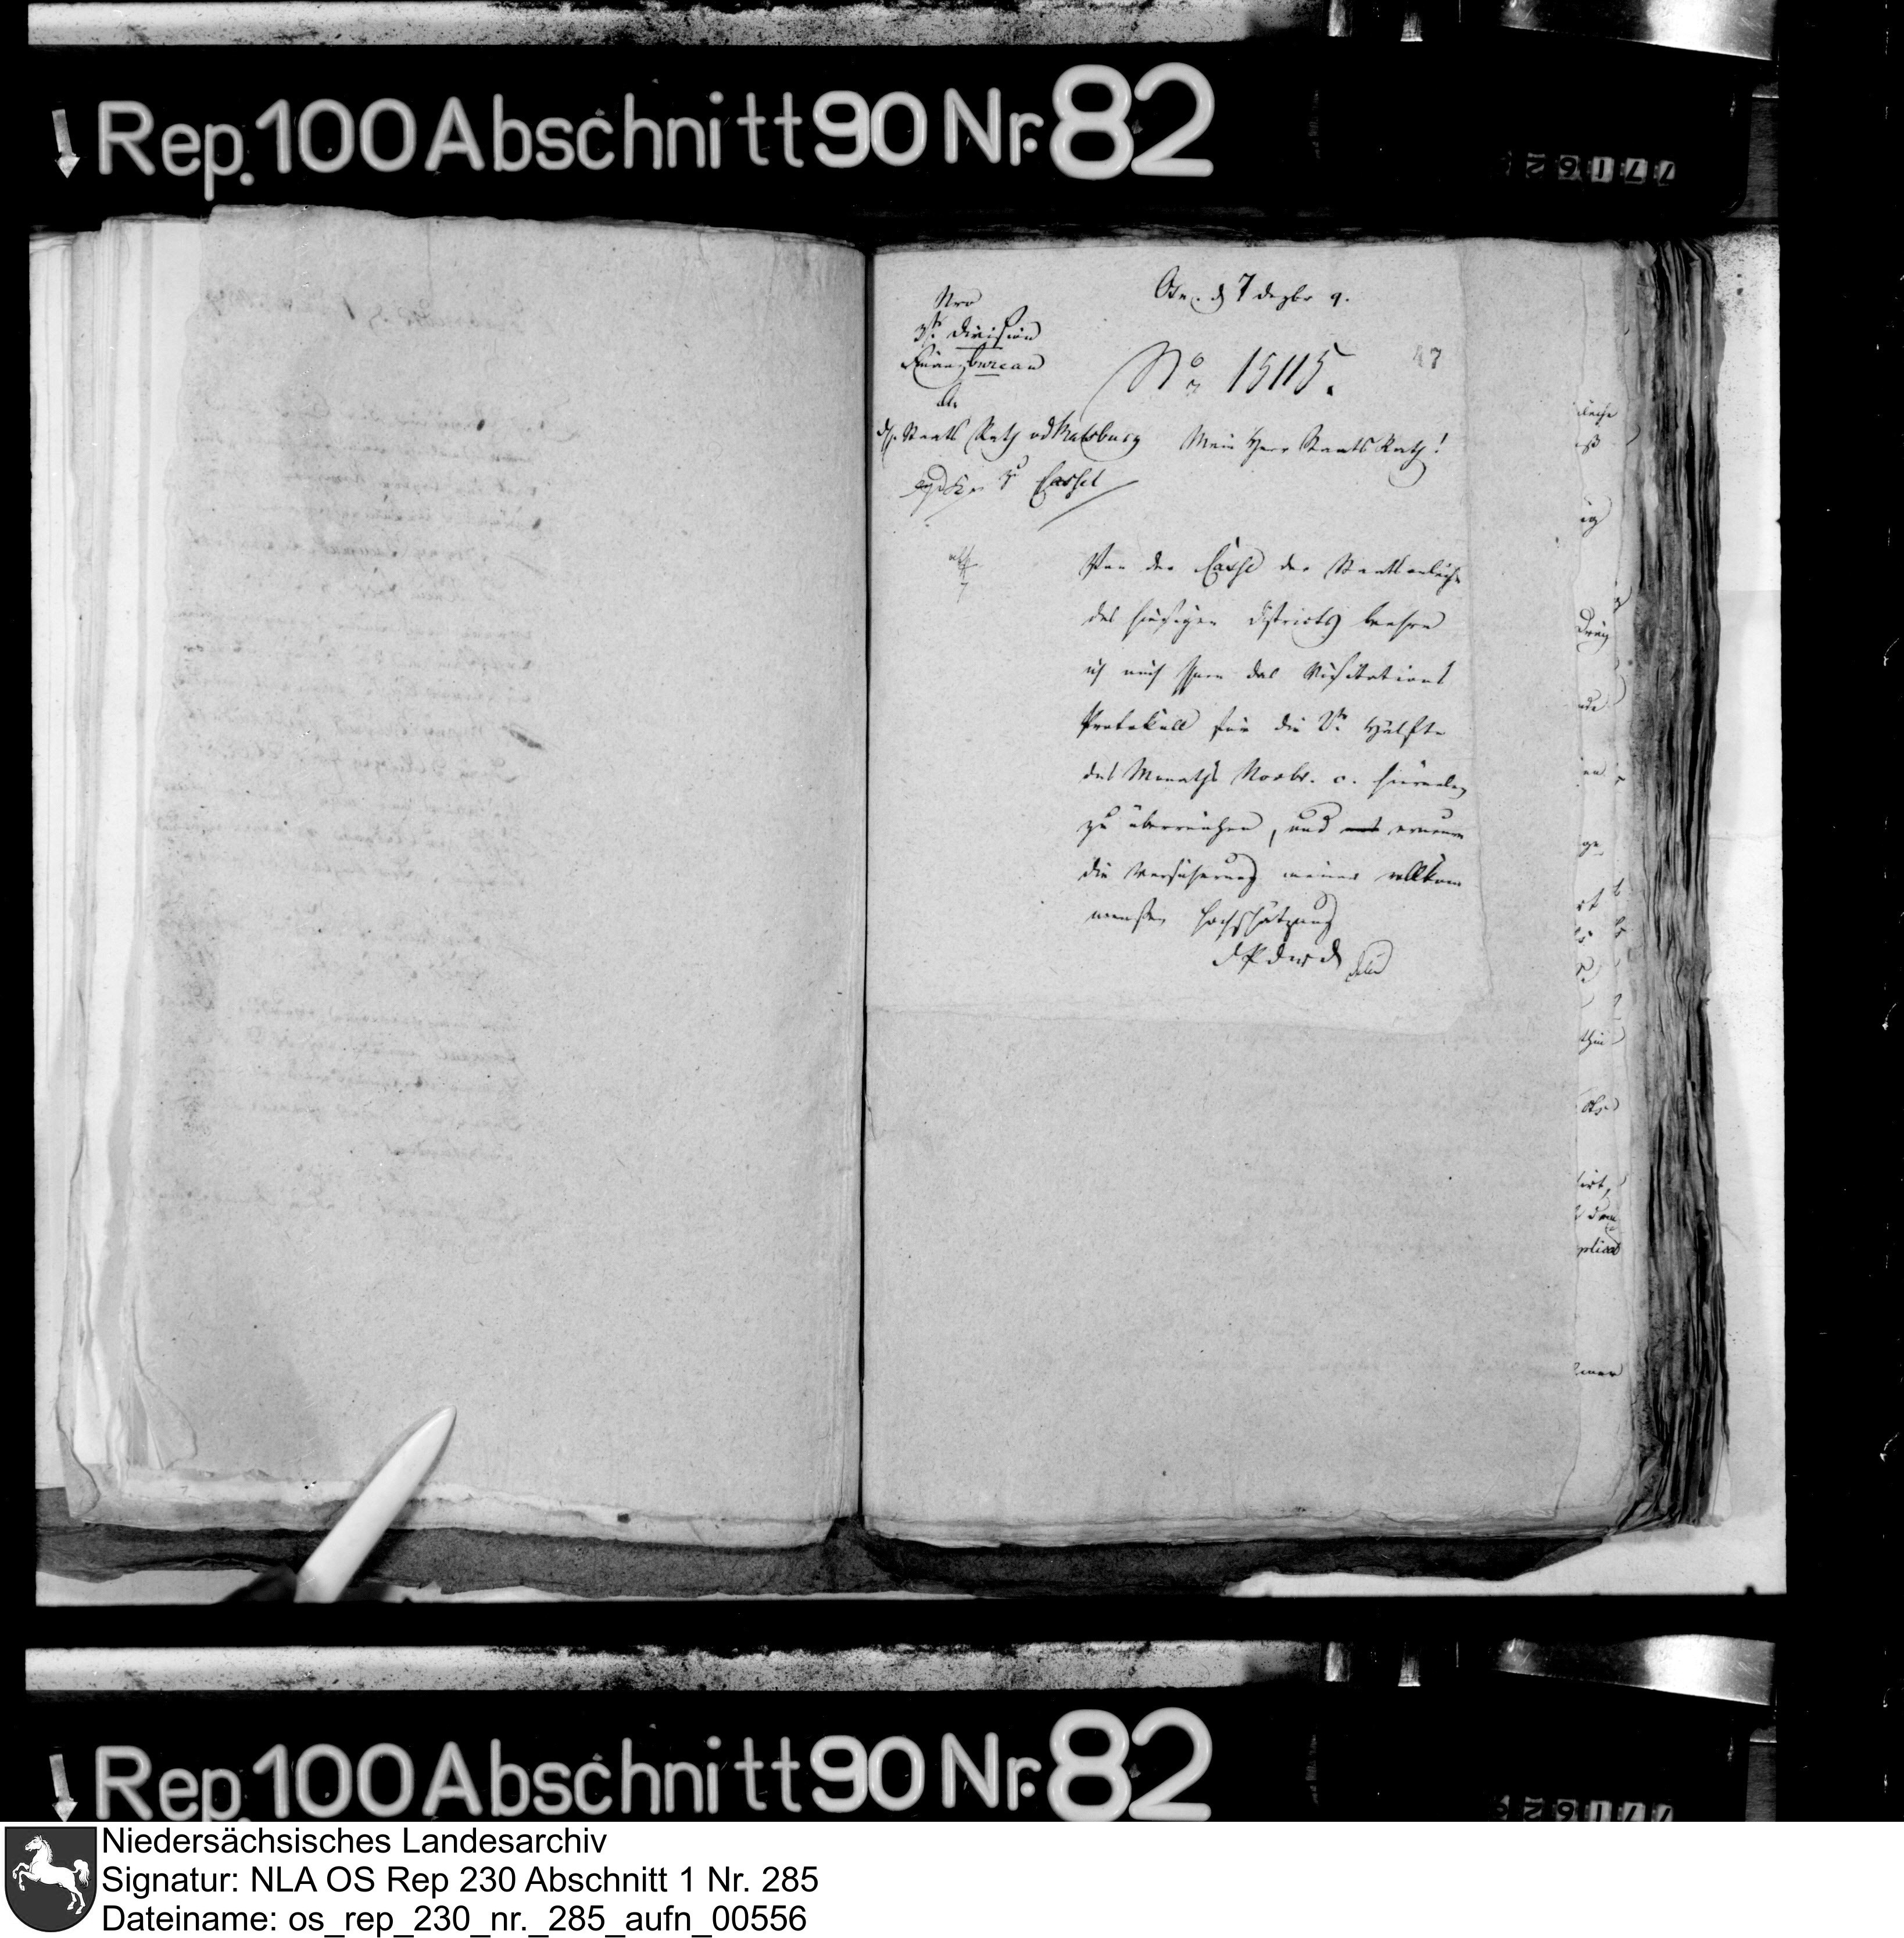 Rep. 100 Abschnitt 90 Nr. 82
Osn. d 7 dezbr 9.
Nro
3te Division
Finanzbureau
An
d. H. Staats Rath vd Malsburg
zu Cassel
No 15115.
47
Mein Herr Staats Rath!
Von der Casse der Staatsanleihe
des hiesigen Districts beehre
ich mich Ihnen das Visitations
Protokoll für die 2te Hälfte
des Monaths Novbr. c. hieneben
zu überreichen, und erneure
die Versicherung meiner vollkom
mensten Hochschätzung
Rep. 100 Abschnitt 90 Nr. 82
Niedersächsisches Landesarchiv
Signatur: NLA OS Rep 230 Abschnitt 1 Nr. 285
Dateiname: os_rep_230_nr._285_aufn_00556